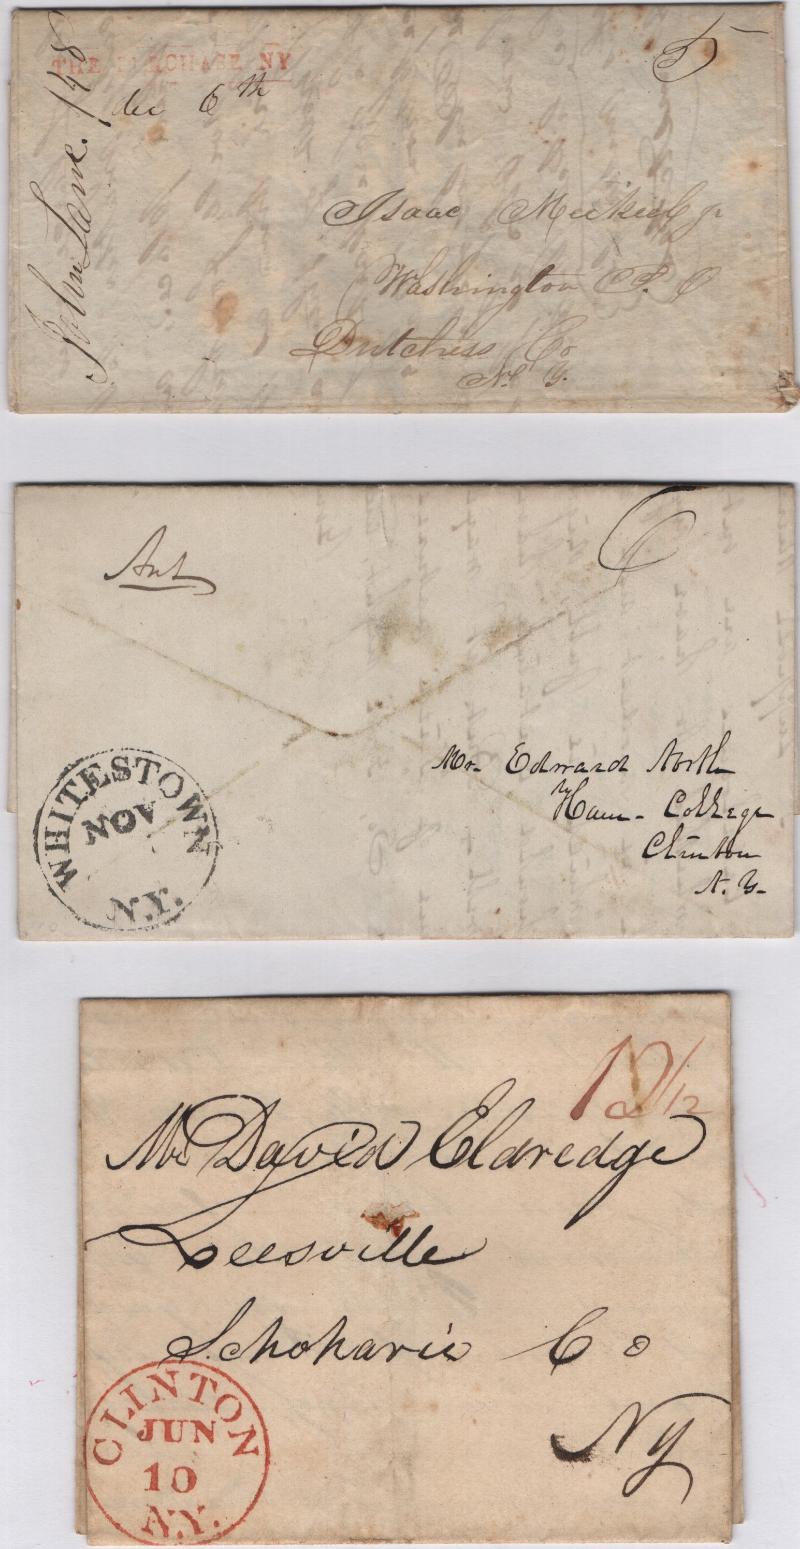 THE PURCHASE NY
dec 6th
5
John Lane. 1/48
Isaac Meekeel Jr
Washington P. O
Dutchess Co
N. Y.
6
WHITESTOWN
NOV
N.Y.
Mr. Edward North
Ham- College
Clinton
N. Y-
12 1/2
Mr David Eldredge
Leesville
Schoharie Co
NY
CLINTON
JUN
10
N.Y.